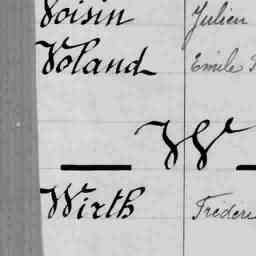 Voisin Julien
Voland Emile
W
Wirth